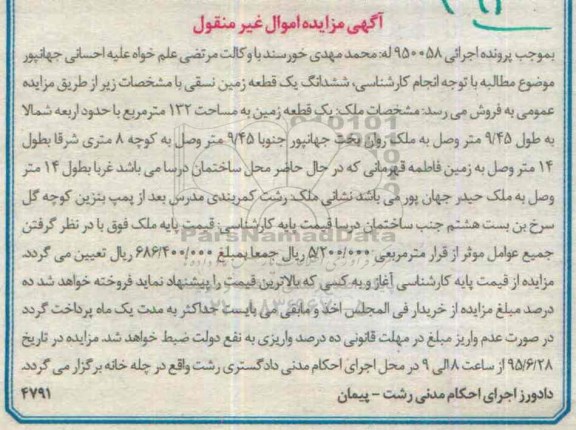 آگهی مزایده اموال غیر منقول
بموجب پرونده اجرائی ۹۵۰۰۵۸ له: محمد مهدی خورسند با وکالت مرتضی علم خواه علیه احسانی جهانپور
موضوع مطالبه با توجه انجام کارشناسی، ششدانگ یک قطعه زمین نسقی با مشخصات زیر از طریق مزایده
عمومی به فروش می رسد: مشخصات ملک: یک قطعه زمین به مساحت ۱۳۲ مترمربع با حدود اربعه شمالا
به طول ۹/۴۵ متر وصل به ملک روان بخت جهانپور جنوبا ۹/۴۵ متر وصل به کوچه ۸ متری شرقا بطول
۱۴ متر وصل به زمین فاطمه قهرمانی که در حال حاضر محل ساختمان درسا می باشد غربا بطول ۱۴ متر
وصل به ملک حیدر جهان پور می باشد نشانی ملک: رشت کمربندی مدرس بعد از پمپ بنزین کوچه گل
سرخ بن بست هشتم جنب ساختمان درسا قیمت پایه کارشناسی: قیمت پایه ملک فوق با در نظر گرفتن
جمیع عوامل موثر از قرار مترمربعی ۵/۲۰۰/۰۰۰ ریال جمعا بمبلغ ۶۸۶/۴۰۰/۰۰۰ ریال تعیین می گردد.
مزایده از قیمت پایه کارشناسی آغاز و به کسی که بالاترین قیمت را پیشنهاد نماید فروخته خواهد شد ده
درصد مبلغ مزایده از خریدار فی المجلس اخذ و مابقی می بایست حداکثر به مدت یک ماه پرداخت گردد
در صورت عدم واریز مبلغ در مهلت قانونی ده درصد واریزی به نفع دولت ضبط خواهد شد. مزایده در تاریخ
۹۵/۶/۲۸ از ساعت ۸ الی ۹ در محل اجرای احکام مدنی دادگستری رشت واقع در چله خانه برگزار می گردد.
دادورز اجرای احکام مدنی رشت - پیمان
۴۷۹۱
ParsNamadData